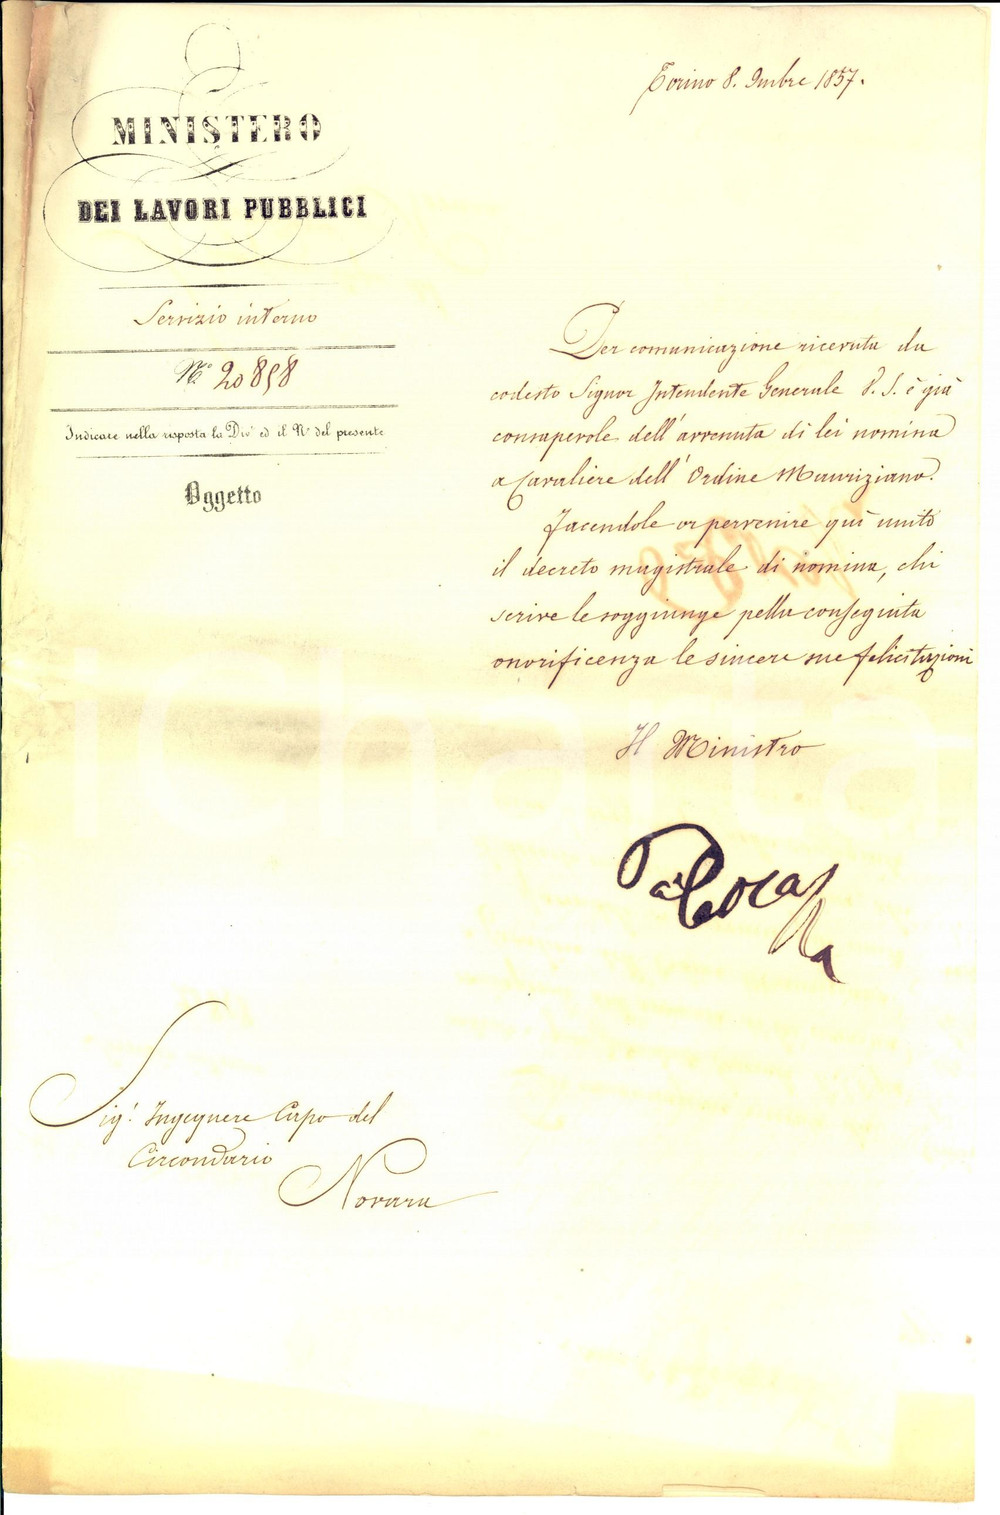 Torino 8. 9mbre 1857.
MINISTERO
DEI LAVORI PUBBLICI
Servizio interno
N.° 20858
Indicare nella risposta la Div.e ed il N.° del presente
Oggetto
Per comunicazione ricevuta da
codesto Signor Intendente Generale V. S. è già
consapevole dell'avvenuta di lei nomina
a Cavaliere dell'Ordine Mauriziano.
Facendole or pervenire quì unito
il decreto magistrale di nomina, chi
scrive le soggiunge pella conseguita
onorificenza le sincere sue felicitazioni
Il Ministro
Paleocapa
Sig.r Ingegnere Capo del
Circondario
Novara